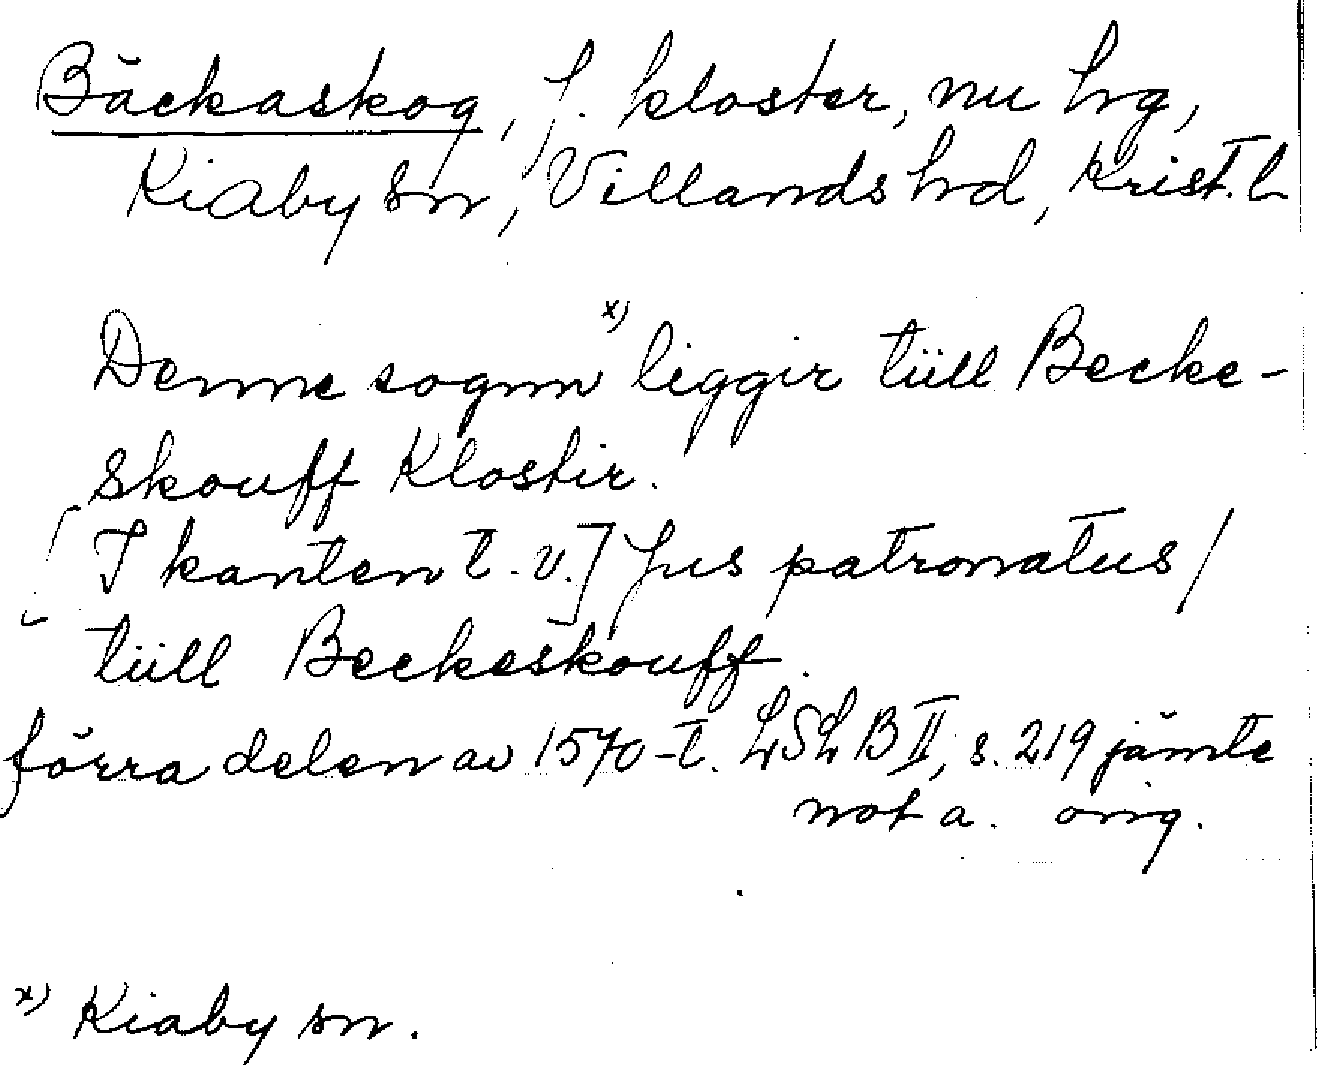 Bäckaskog, f. kloster, nu hrg,
Kiaby sn, Villands hrd, Krist. l
Denne sognn x) liggir tiill Becke-
skouff Klostir.
[I kanten t.v.] Jus patronatus/
tiill Beckeskouff.
förra delen av 1570-t. LSLB II, s. 219 jämte
not a. orig.
x) Kiaby sn.